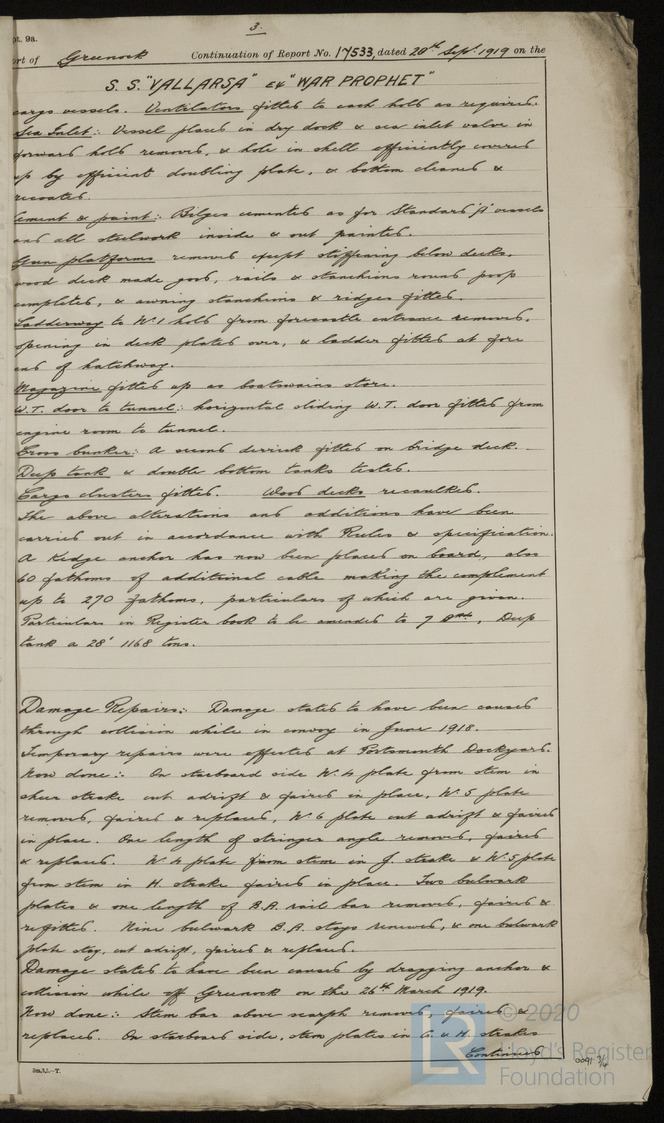 3.
pt. 9a.
rt of Greenock Continuation of Report No. 17533, dated 20th Sept. 1919 on the
S. S. "VALLARSA" ex "WAR PROPHET"
cargo vessels. Ventilators fitted to each hold as required.
Sea Inlet:- Vessel placed in dry dock & sea inlet valve in
forward hold removed, & hole in shell efficiently covered
up by efficient doubling plate, & bottom cleaned &
recoated.
Cement & paint:- Bilges cemented as for Standard "A" vessels
and all steelwork inside & out painted.
Gun platforms removed except stiffening below decks,
wood deck made good, rails & stanchions round poop
completed, & awning stanchions & ridges fitted.
Ladderway to No. 1 hold from forecastle entrance removed,
opening in deck plated over, & ladder fitted at fore
end of hatchway.
Magazine fitted up as boatswains store.
W.T. door to tunnel:- horizontal sliding W.T. door fitted from
engine room to tunnel.
Cross bunker:- A second derrick fitted on bridge deck.
Deep tank & double bottom tanks tested.
Cargo clusters fitted. Wood decks recaulked.
The above alterations and additions have been
carried out in accordance with Rules & specification.
A Kedge anchor has now been placed on board, also
60 fathoms of additional cable making the complement
up to 270 fathoms, particulars of which are given.
Particulars in Register book to be amended to 7 Deep
tank a 28' 1168 tons.
Damage Repairs:- Damage stated to have been caused
through collision while in convoy in June 1918.
Temporary repairs were effected at Portsmouth Dockyard.
Now done:- On starboard side No. 4 plate from stem in
sheer strake cut adrift & faired in place, No. 5 plate
removed, faired & replaced, No. 6 plate cut adrift & faired
in place. One length of stringer angle removed, faired
& replaced. No. 4 plate from stem in J. strake & No. 5 plate
from stem in H. strake faired in place. Two bulwark
plates & one length of B.A. rail bar removed, faired &
refitted. Nine bulwark B.A. stays renewed, & one bulwark
plate stay, cut adrift, faired & replaced.
Damage stated to have been caused by dragging anchor &
collision while off Greenock on the 26th March 1919.
Now done:- Stem bar above scarph removed, faired &
replaced. On starboard side, stem plates in G. & H. strakes
Continued
© 2020
LR Lloyd's Register
Foundation
0091 3/4